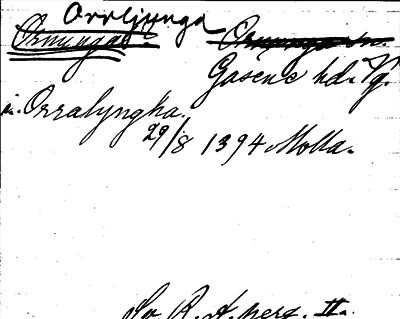 Orrljunga
Ornunga s:n.
Gäsene hd. Vg.
i. Orralyngha
29/8 1394 Molla.
Sv. R. A. perg. II.